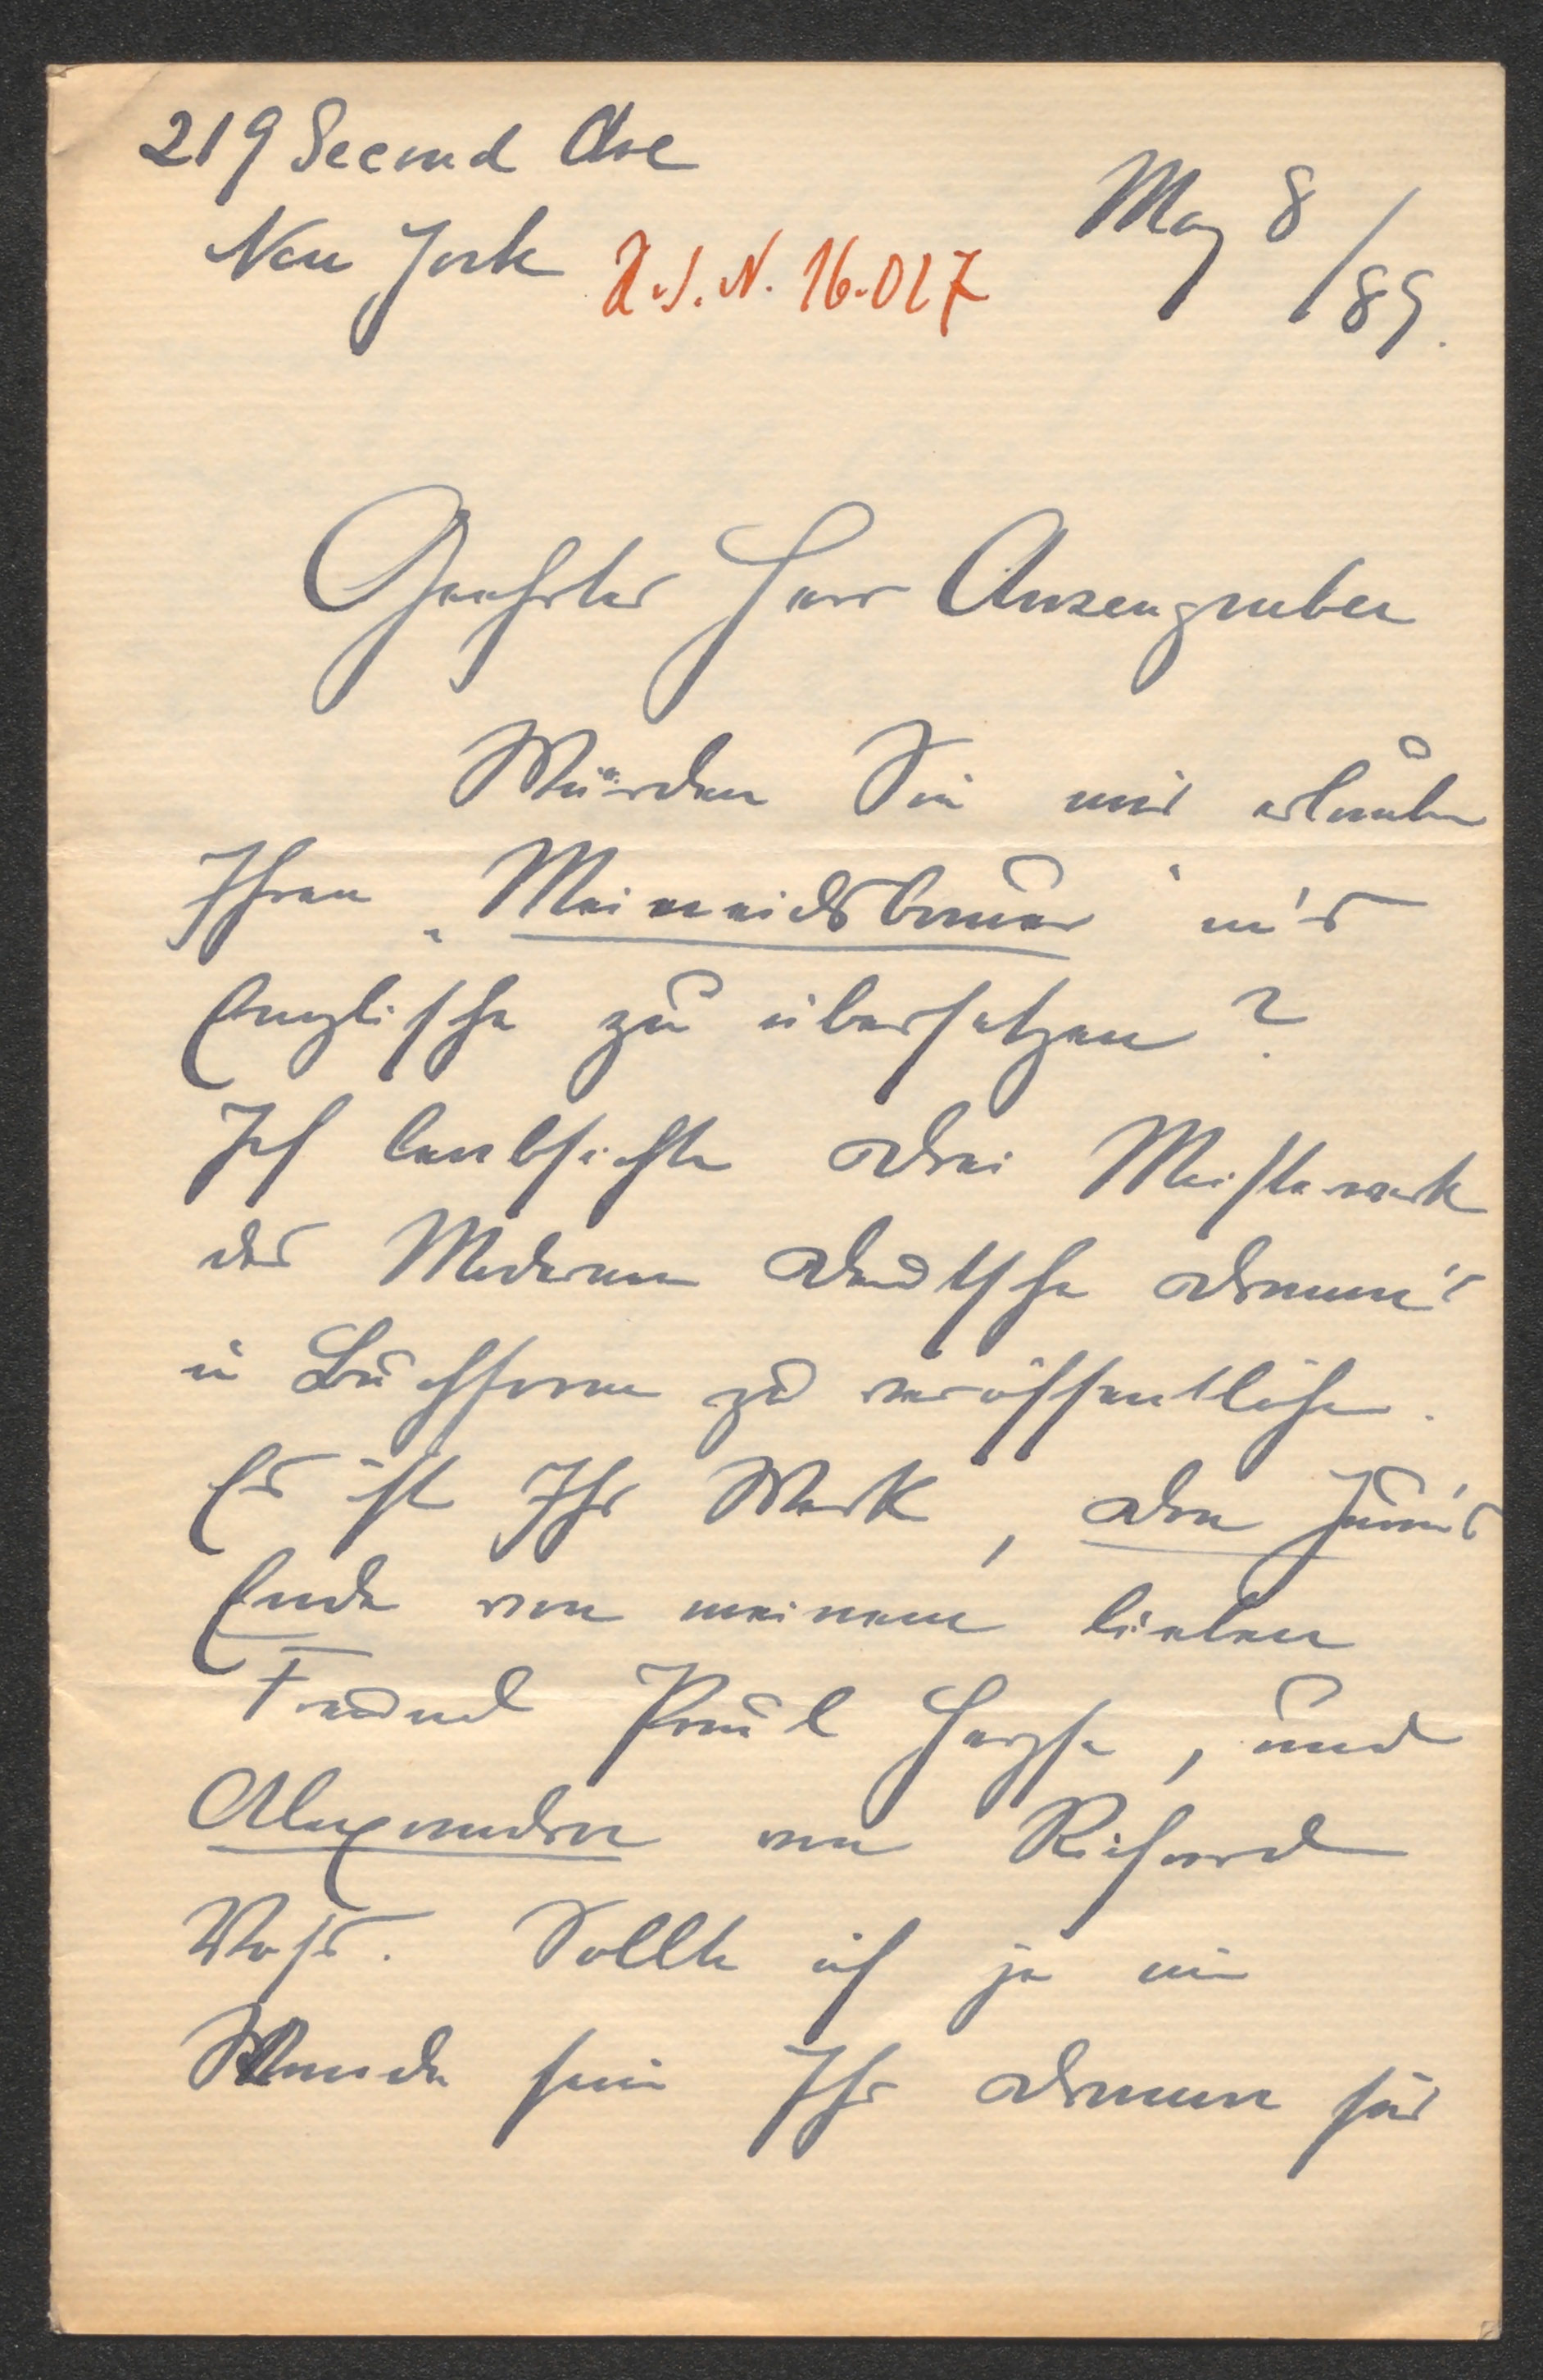 219 Second Ave
New York
J. N. 16.017
May 8/89.
Geehrter Herr Anzengruber
Würden Sie mir erlauben
Ihren „Meineidsbauer" in's
Englische zu übersetzen?
Ich beabsichte drei Meisterwerk
des Modernen deutsche Drama's
in Buchform zu veröffentlichen.
Es ist Ihr Werk, Don Juan's
Ende von meinem lieben
Freund Paul Heyse, und
Alexandra von Richard
Voss. Sollte ich je im
Stande sein Ihr Drama für